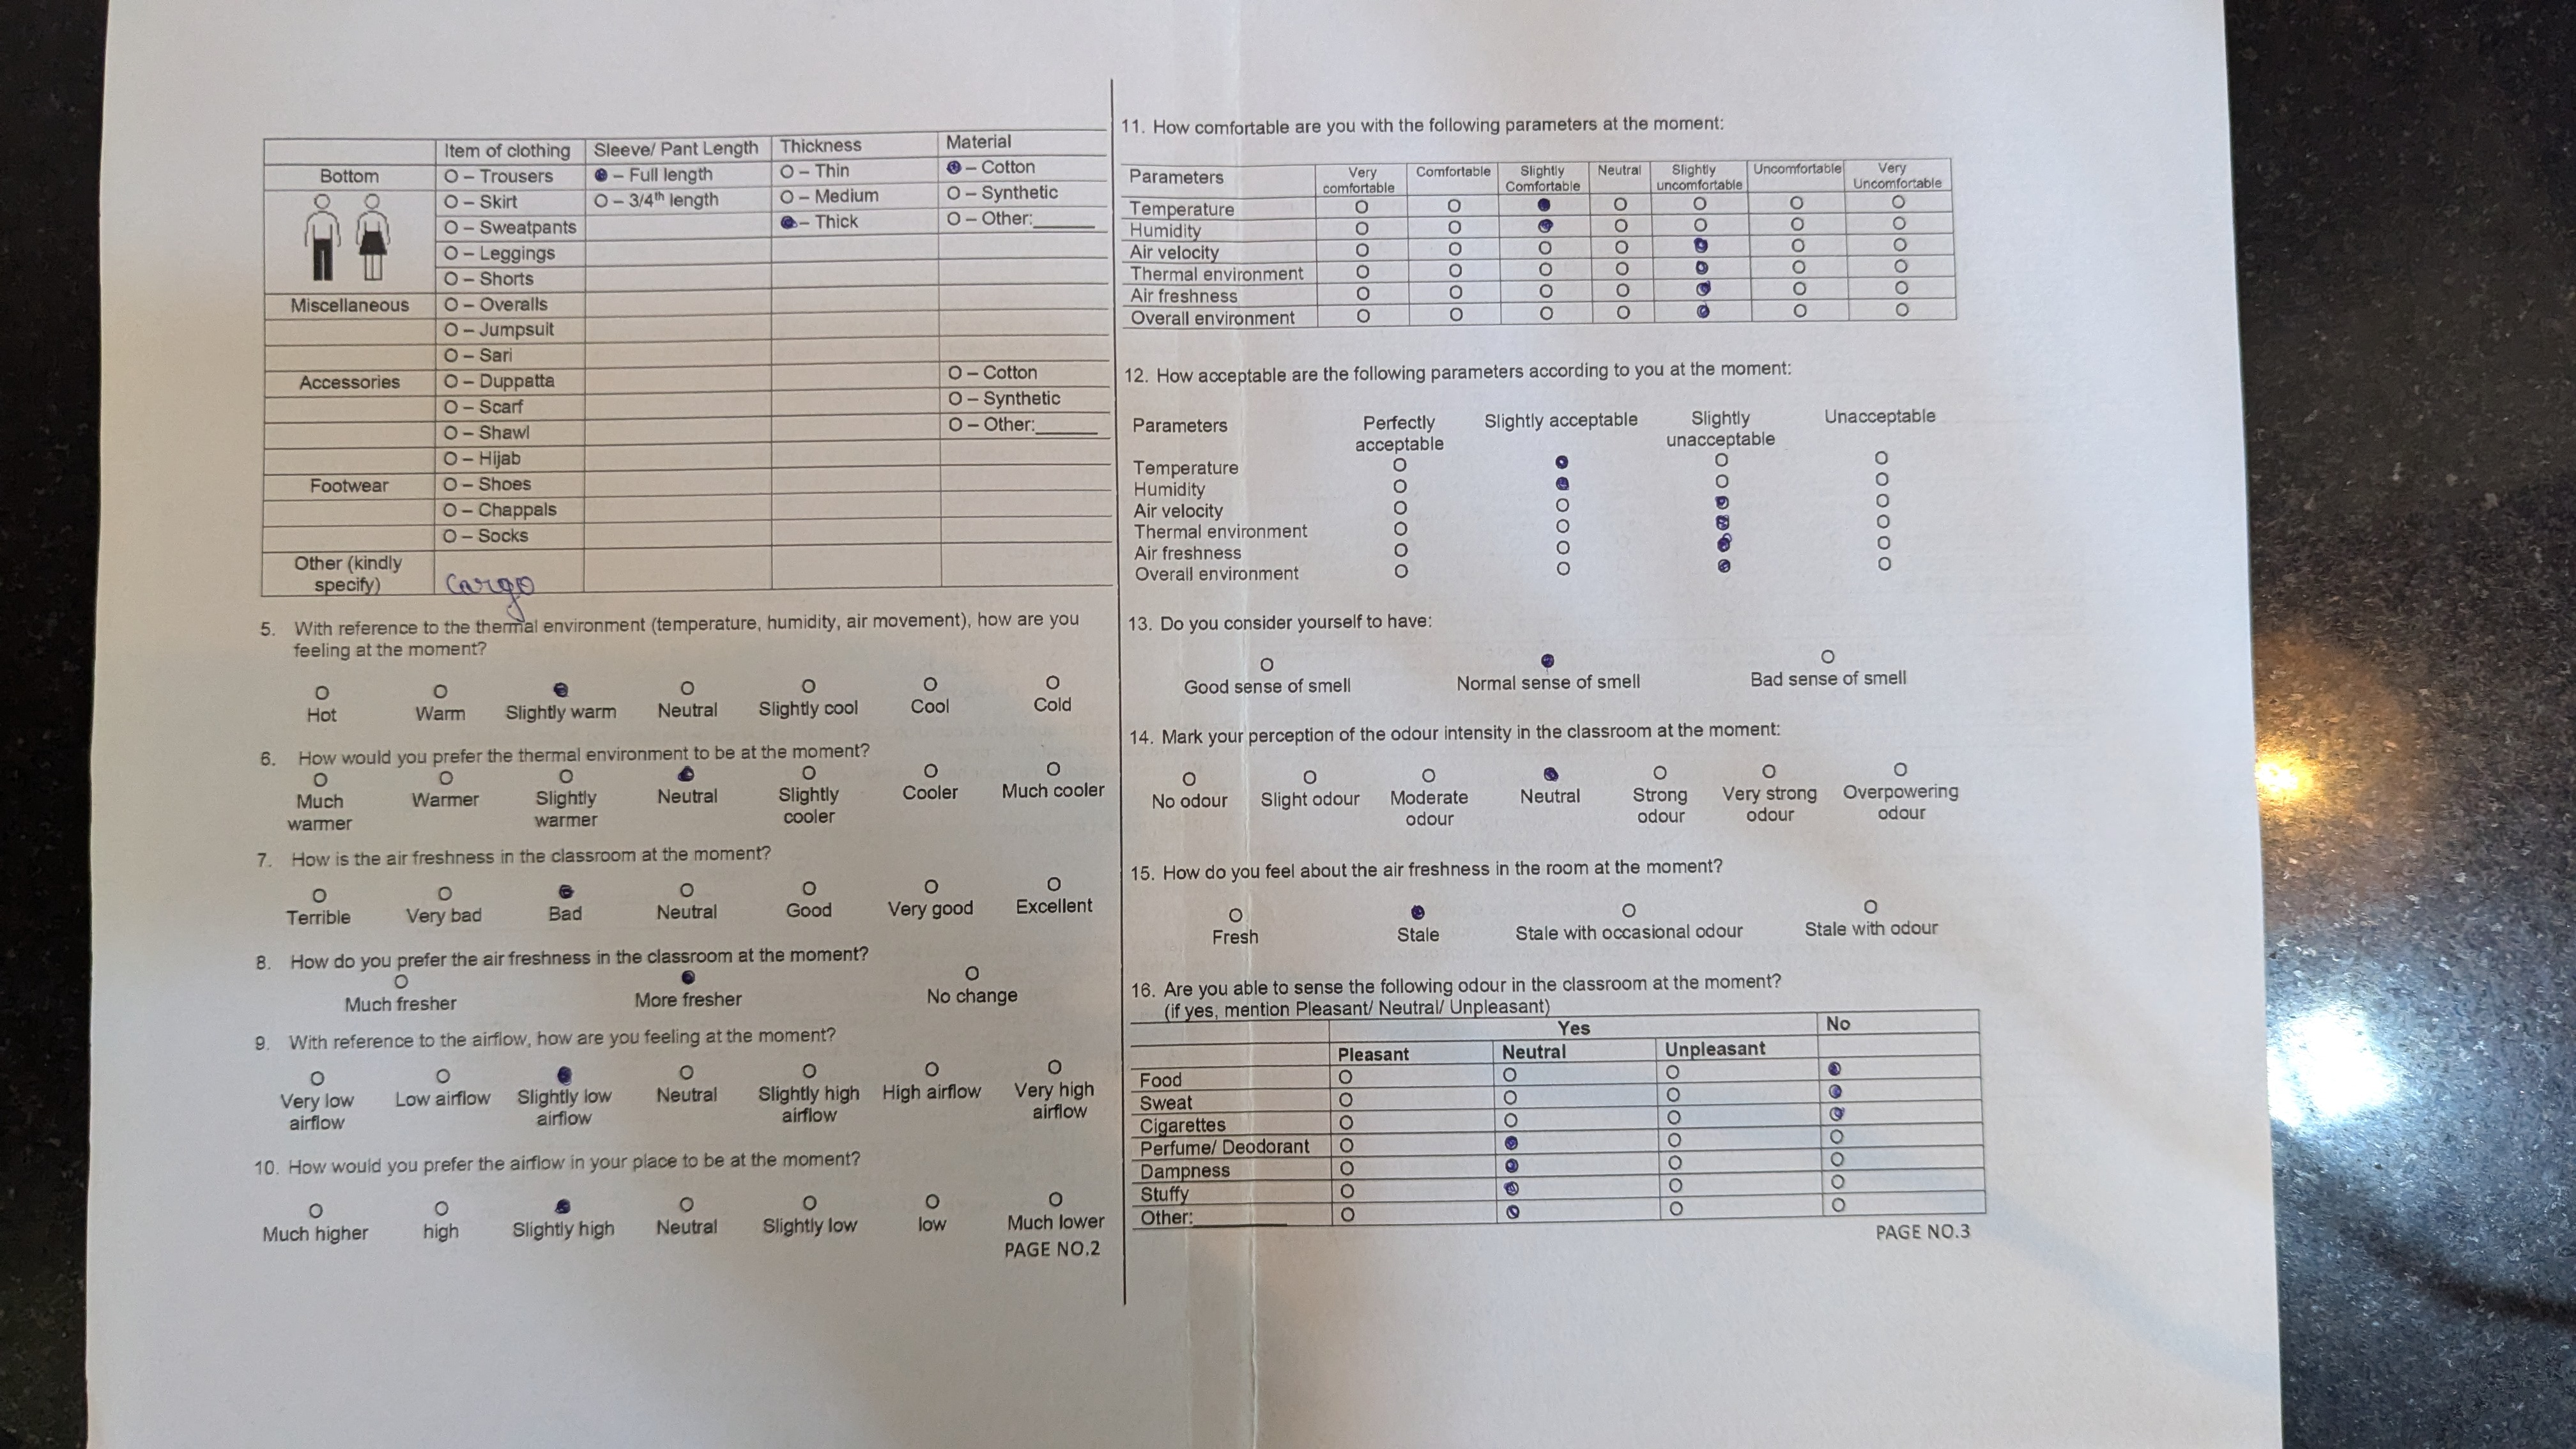 Item of clothing Sleeve/ Pant Length Thickness Material
Bottom O – Trousers ● – Full length O – Thin ● – Cotton
O – Skirt O – 3/4th length O – Medium O – Synthetic
O – Sweatpants ● – Thick O – Other:______
O – Leggings
O – Shorts
Miscellaneous O – Overalls
O – Jumpsuit
O – Sari
Accessories O – Duppatta O – Cotton
O – Scarf O – Synthetic
O – Shawl O – Other:______
O – Hijab
Footwear O – Shoes
O – Chappals
O – Socks
Other (kindly
specify) Cargo
5. With reference to the thermal environment (temperature, humidity, air movement), how are you
feeling at the moment?
O O ● O O O O
Hot Warm Slightly warm Neutral Slightly cool Cool Cold
6. How would you prefer the thermal environment to be at the moment?
O O O ● O O O
Much Warmer Slightly Neutral Slightly Cooler Much cooler
warmer warmer cooler
7. How is the air freshness in the classroom at the moment?
O O ● O O O O
Terrible Very bad Bad Neutral Good Very good Excellent
8. How do you prefer the air freshness in the classroom at the moment?
O ● O
Much fresher More fresher No change
9. With reference to the airflow, how are you feeling at the moment?
O O ● O O O O
Very low Low airflow Slightly low Neutral Slightly high High airflow Very high
airflow airflow airflow airflow
10. How would you prefer the airflow in your place to be at the moment?
O O ● O O O O
Much higher high Slightly high Neutral Slightly low low Much lower
PAGE NO.2
11. How comfortable are you with the following parameters at the moment:
Parameters Very Comfortable Slightly Neutral Slightly Uncomfortable Very
comfortable Comfortable uncomfortable Uncomfortable
Temperature O O ● O O O O
Humidity O O ● O O O O
Air velocity O O O O ● O O
Thermal environment O O O O ● O O
Air freshness O O O O ● O O
Overall environment O O O O ● O O
12. How acceptable are the following parameters according to you at the moment:
Parameters Perfectly Slightly acceptable Slightly Unacceptable
acceptable unacceptable
Temperature O ● O O
Humidity O ● O O
Air velocity O O ● O
Thermal environment O O ● O
Air freshness O O ● O
Overall environment O O ● O
13. Do you consider yourself to have:
O ● O
Good sense of smell Normal sense of smell Bad sense of smell
14. Mark your perception of the odour intensity in the classroom at the moment:
O O O ● O O O
No odour Slight odour Moderate Neutral Strong Very strong Overpowering
odour odour odour odour
15. How do you feel about the air freshness in the room at the moment?
O ● O O
Fresh Stale Stale with occasional odour Stale with odour
16. Are you able to sense the following odour in the classroom at the moment?
(if yes, mention Pleasant/ Neutral/ Unpleasant)
Yes No
Pleasant Neutral Unpleasant
Food O O O ●
Sweat O O O ●
Cigarettes O O O ●
Perfume/ Deodorant O ● O O
Dampness O ● O O
Stuffy O ● O O
Other:_________ O ● O O
PAGE NO.3